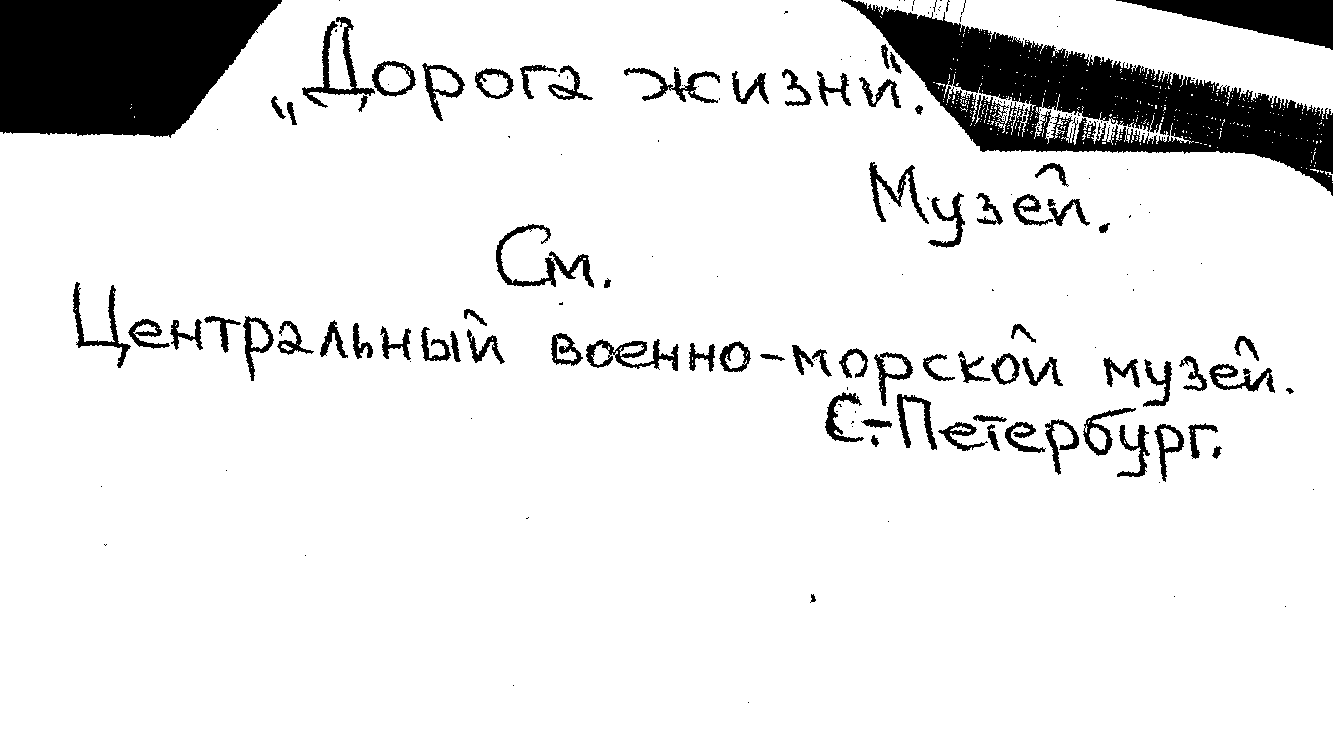 „Дорога жизни".
Музей.
См.
Центральный военно-морской музей.
С.-Петербург.